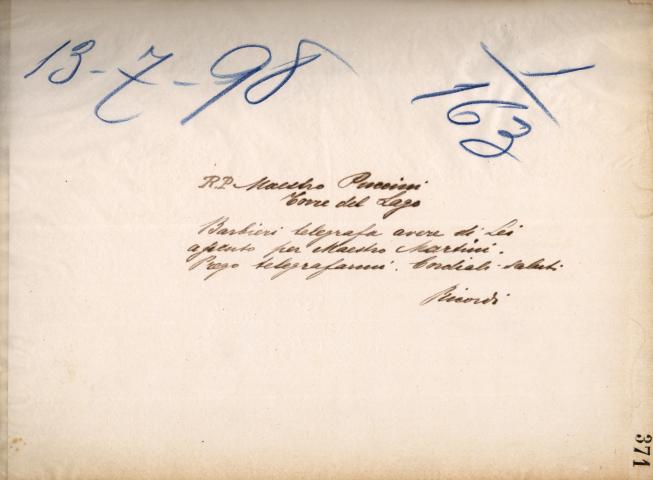 13-7-98
1/163
R.P. Maestro Puccini
Torre del Lago
Barbieri telegrafa avere di Lei
assenso per Maestro Martini.
Prego telegrafarmi. Cordiali saluti
Ricordi
371